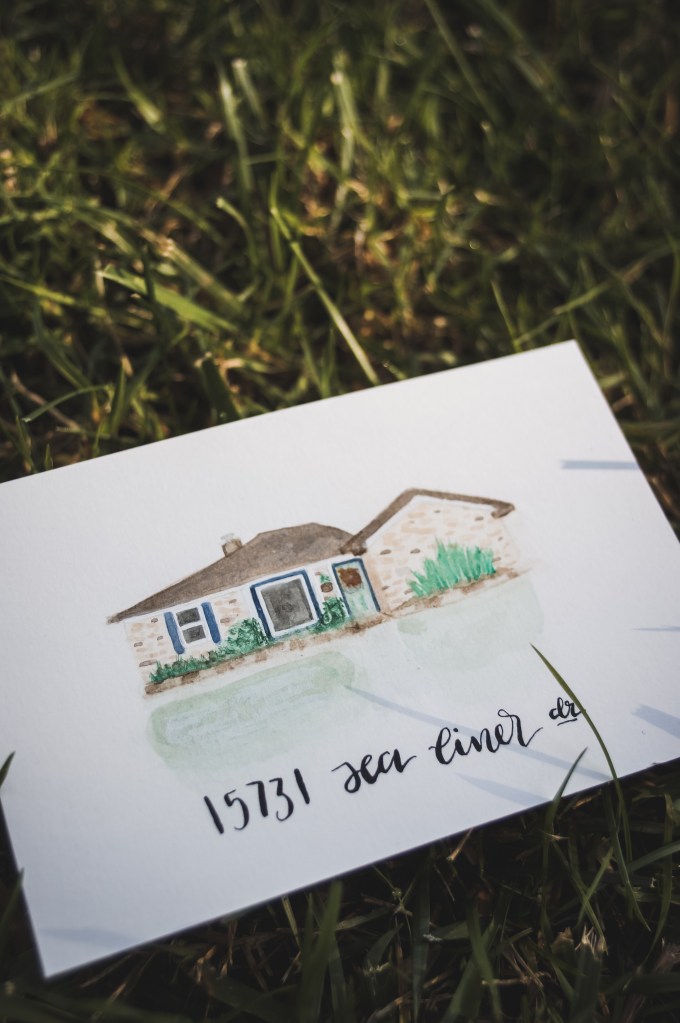 15731 sea liner dr